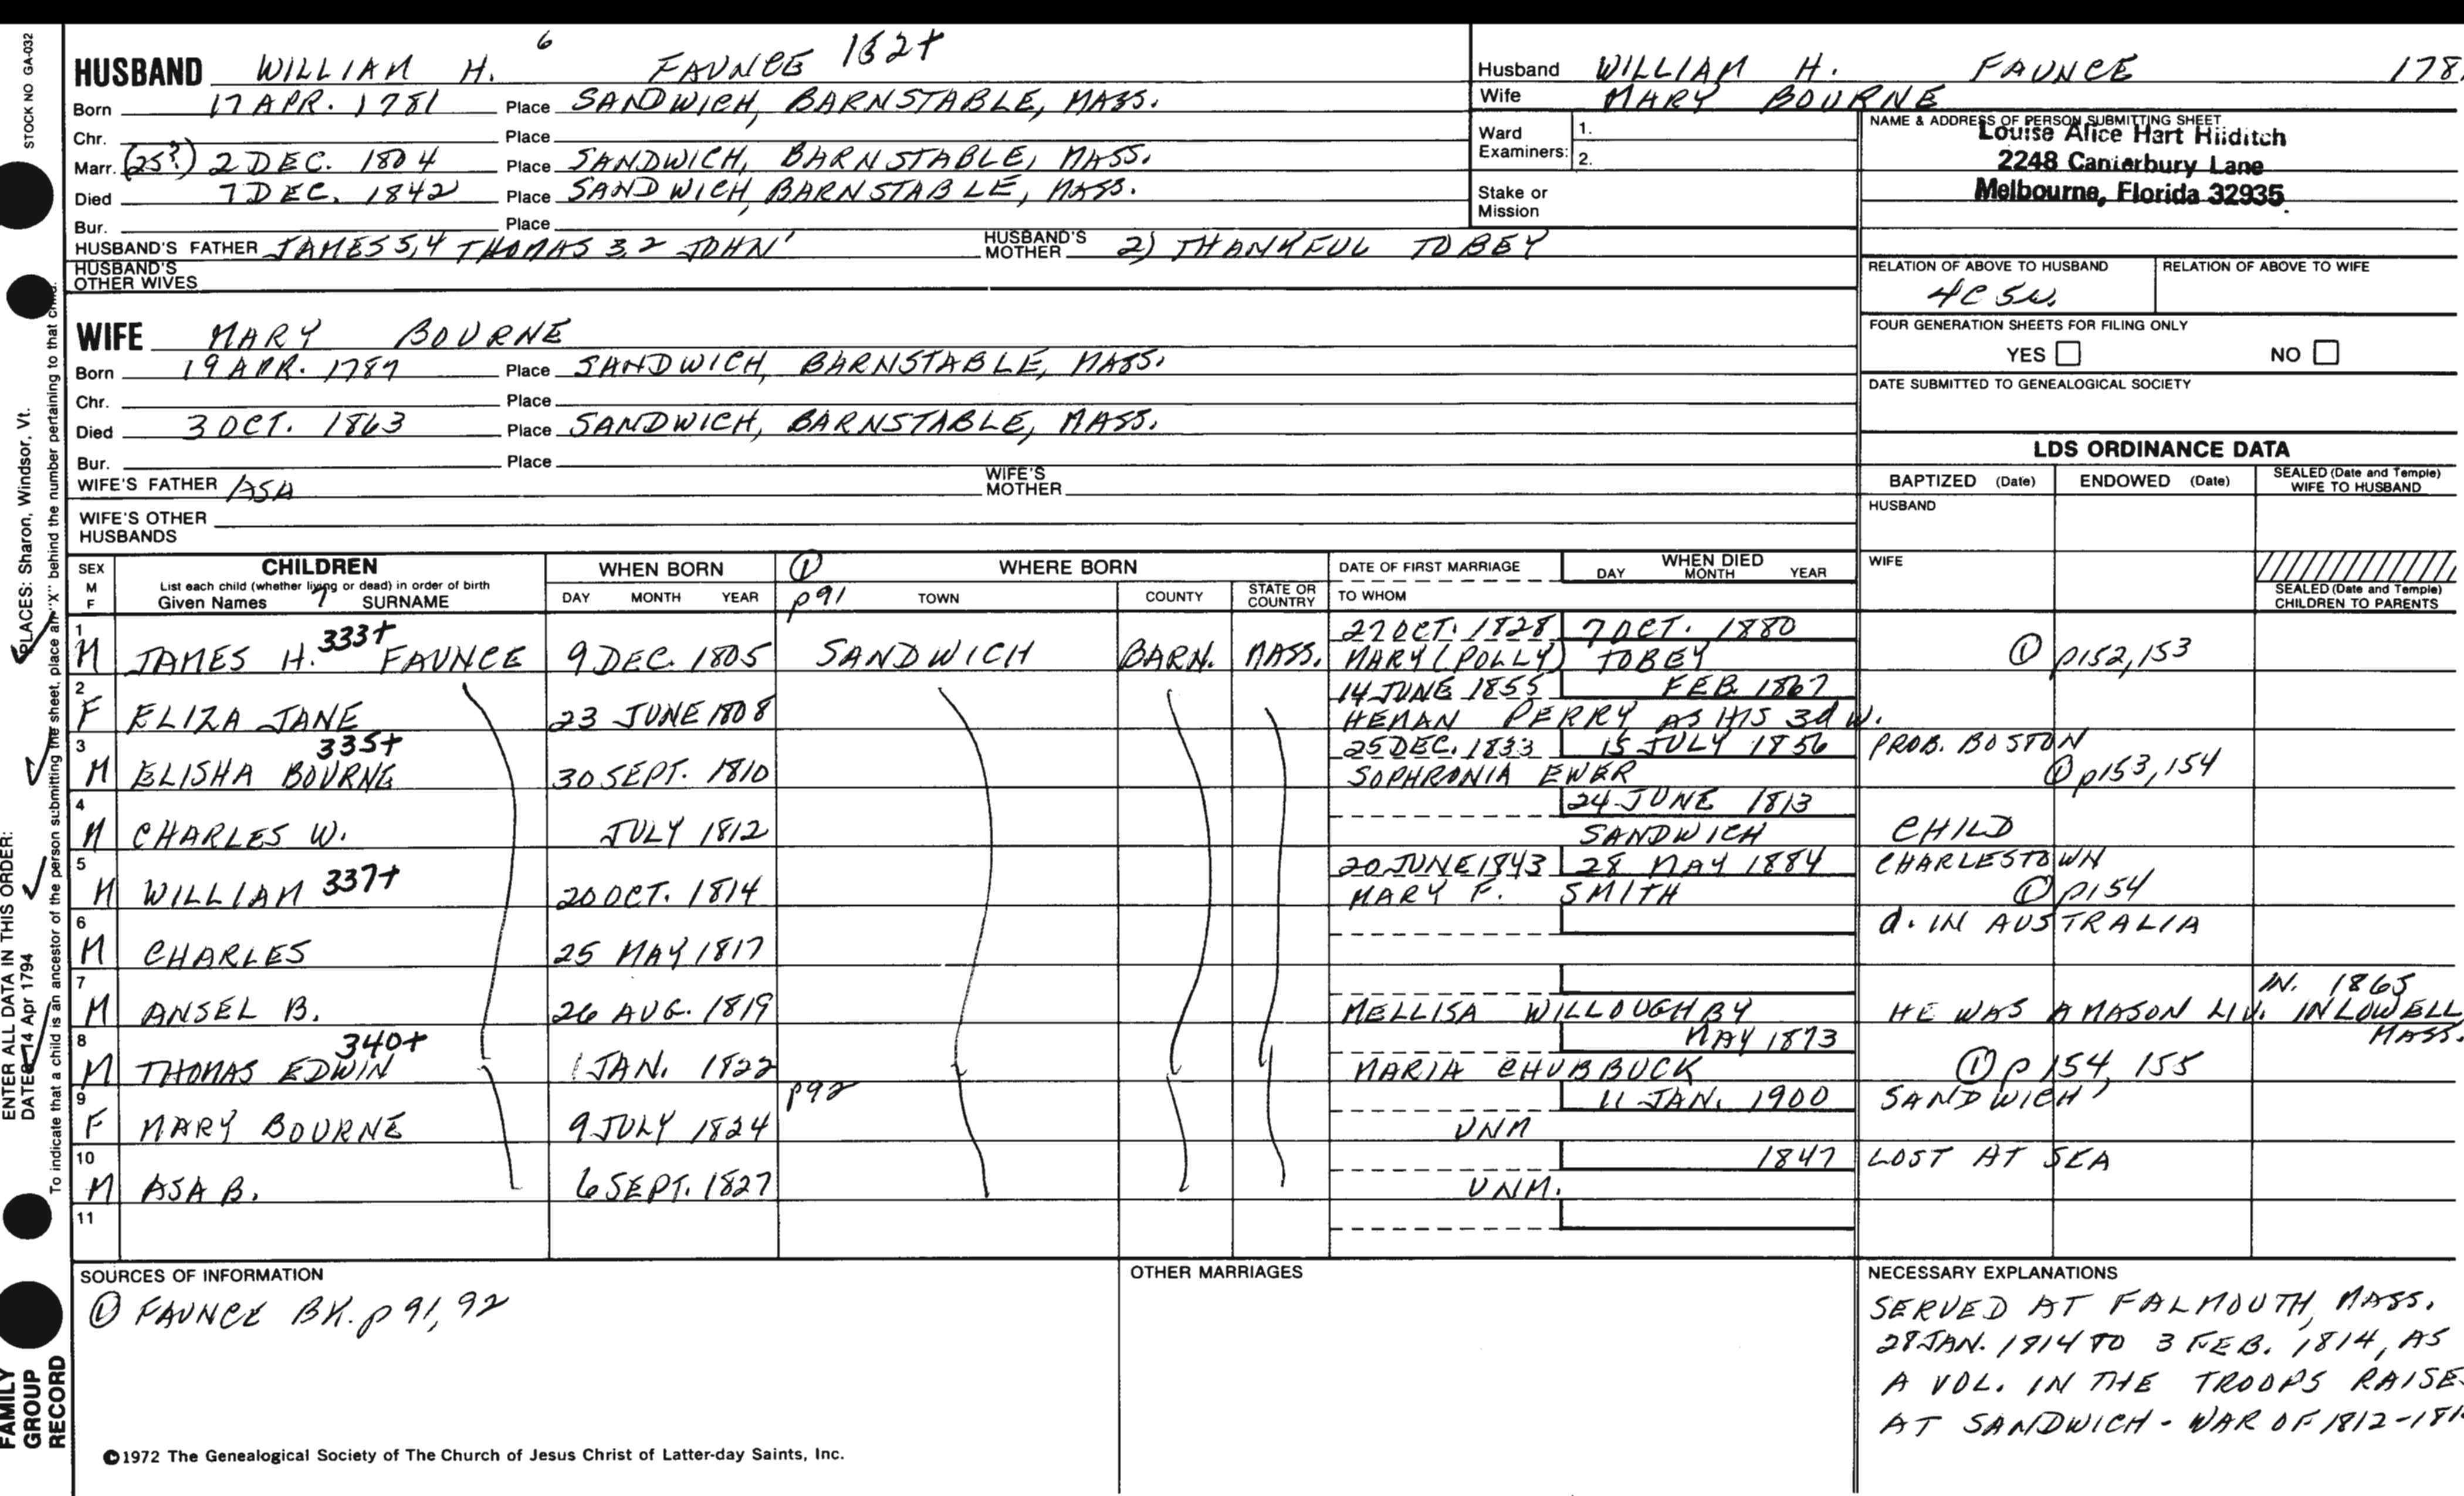 STOCK NO GA-032
HUSBAND WILLIAM H. 6 FAUNCE 152+
Born 17 APR. 1781 Place SANDWICH, BARNSTABLE, MASS.
Chr. Place
Marr. (25?) 2 DEC. 1804 Place SANDWICH, BARNSTABLE, MASS.
Died 7 DEC. 1842 Place SANDWICH, BARNSTABLE, MASS.
Bur. Place
HUSBAND'S FATHER JAMES 5,4 THOMAS 3,2 JOHN 1 HUSBAND'S MOTHER 2) THANKFUL TOBEY
HUSBAND'S OTHER WIVES
WIFE MARY BOURNE
Born 19 APR. 1787 Place SANDWICH, BARNSTABLE, MASS.
Chr. Place
Died 3 OCT. 1863 Place SANDWICH, BARNSTABLE, MASS.
Bur. Place
WIFE'S FATHER ASA WIFE'S MOTHER
WIFE'S OTHER HUSBANDS
Husband WILLIAM H. FAUNCE 178
Wife MARY BOURNE
Ward Examiners: 1. 2.
Stake or Mission
NAME & ADDRESS OF PERSON SUBMITTING SHEET
Louise Alice Hart Hilditch
2248 Canterbury Lane
Melbourne, Florida 32935
RELATION OF ABOVE TO HUSBAND RELATION OF ABOVE TO WIFE
4C 5W.
FOUR GENERATION SHEETS FOR FILING ONLY
YES NO
DATE SUBMITTED TO GENEALOGICAL SOCIETY
LDS ORDINANCE DATA
BAPTIZED (Date) ENDOWED (Date) SEALED (Date and Temple) WIFE TO HUSBAND
HUSBAND
WIFE
SEALED (Date and Temple) CHILDREN TO PARENTS
SEX M F CHILDREN List each child (whether living or dead) in order of birth Given Names 7 SURNAME
WHEN BORN DAY MONTH YEAR
① p91 WHERE BORN TOWN COUNTY STATE OR COUNTRY
DATE OF FIRST MARRIAGE TO WHOM
WHEN DIED DAY MONTH YEAR
1 M JAMES H. 333+ FAUNCE 9 DEC. 1805 SANDWICH BARN. MASS. 27 OCT. 1828 7 OCT. 1880
MARY (POLLY) TOBEY ① p152,153
2 F ELIZA JANE 23 JUNE 1808 14 JUNE 1855 FEB. 1867
HEMAN PERRY AS HIS 3d W.
3 M ELISHA BOURNE 335+ 30 SEPT. 1810 25 DEC. 1833 15 JULY 1856 PROB. BOSTON
SOPHRONIA EWER ① p153,154
4 M CHARLES W. JULY 1812 24 JUNE 1813
SANDWICH CHILD
5 M WILLIAM 337+ 20 OCT. 1814 20 JUNE 1843 28 MAY 1884 CHARLESTOWN
MARY F. SMITH ① p154
6 M CHARLES 25 MAY 1817 d. IN AUSTRALIA
7 M ANSEL B. 26 AUG. 1819 IN. 1865
MELLISA WILLOUGHBY HE WAS A MASON LIV. IN LOWELL MASS.
8 M THOMAS EDWIN 340+ 1 JAN. 1822 MAY 1873
MARIA CHUBBUCK ① p154, 155
p92
9 F MARY BOURNE 9 JULY 1824 11 JAN. 1900 SANDWICH
UNM
10 M ASA B. 6 SEPT. 1827 1847 LOST AT SEA
UNM.
11
SOURCES OF INFORMATION
① FAUNCE BK. p 91, 92
OTHER MARRIAGES
NECESSARY EXPLANATIONS
SERVED AT FALMOUTH, MASS.
28 JAN. 1814 TO 3 FEB. 1814, AS
A VOL. IN THE TROOPS RAISE
AT SANDWICH - WAR OF 1812-181
©1972 The Genealogical Society of The Church of Jesus Christ of Latter-day Saints, Inc.
FAMILY GROUP RECORD
ENTER ALL DATA IN THIS ORDER:
DATES: 14 Apr 1794 PLACES: Sharon, Windsor, Vt.
To indicate that a child is an ancestor of the person submitting the sheet, place an "X" behind the number pertaining to that child.